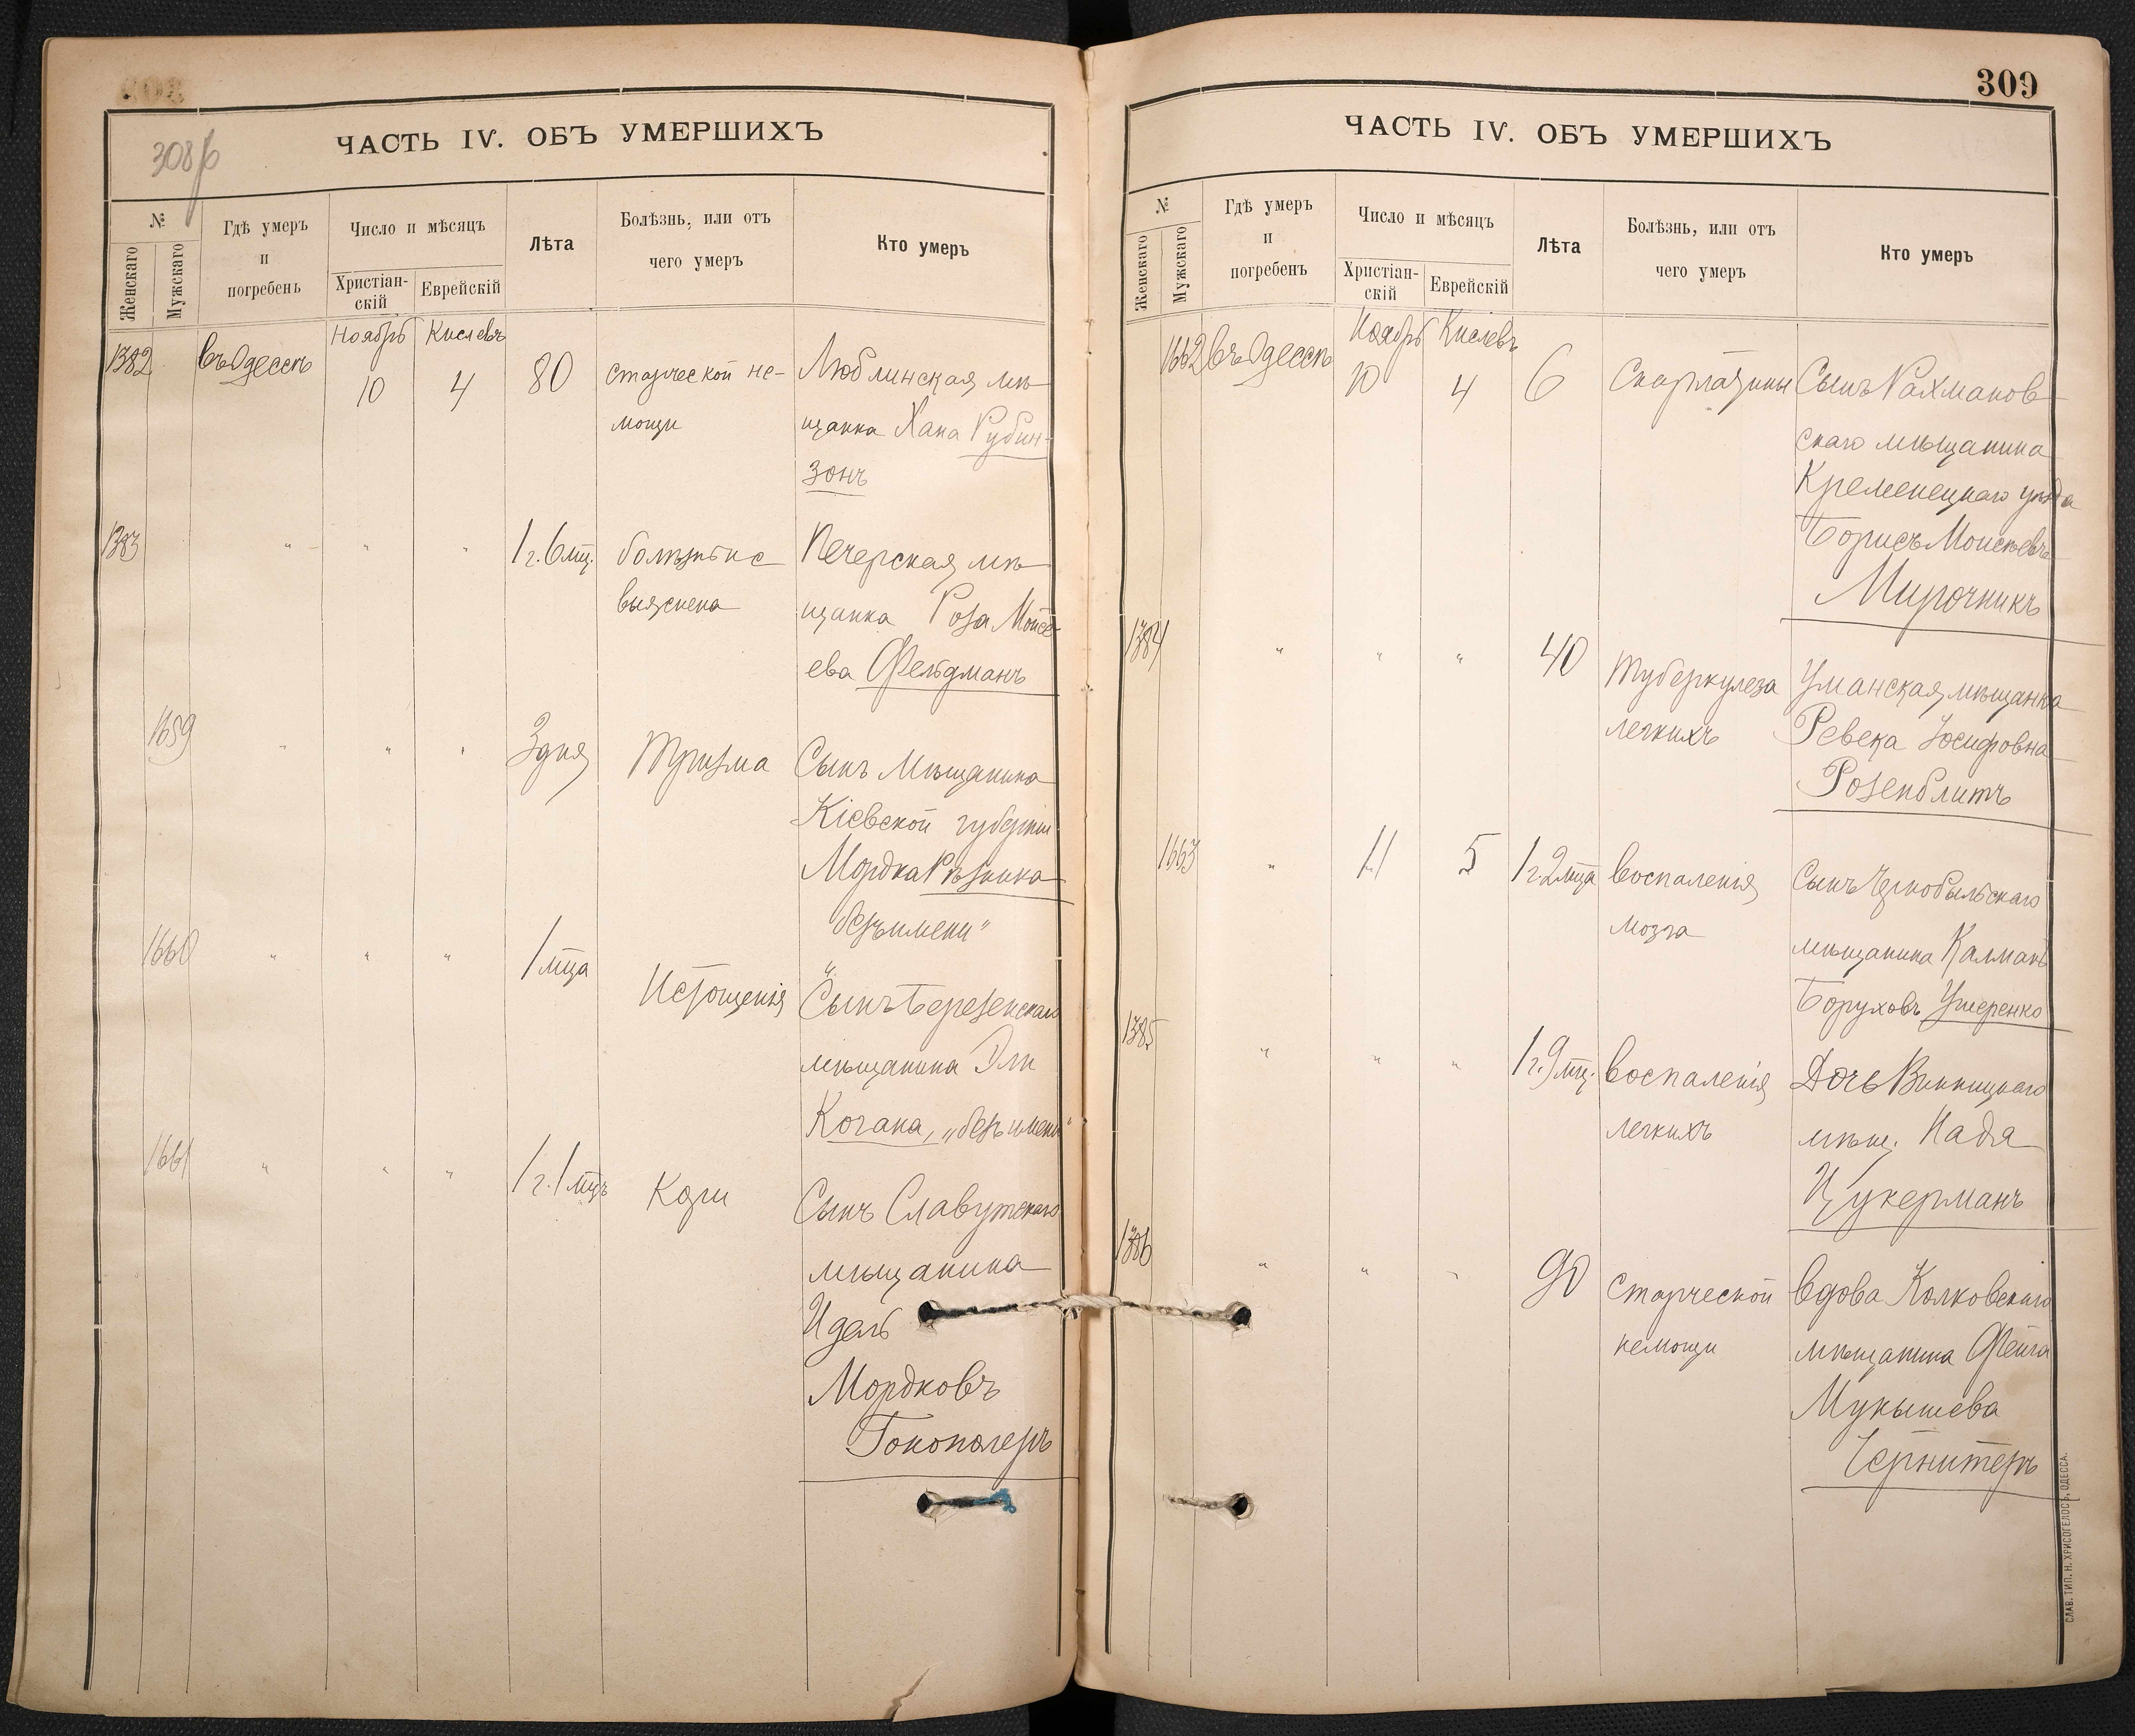 308 б
ЧАСТЬ IV. ОБЪ УМЕРШИХЪ
№
Женскаго
Мужскаго
Гдѣ умеръ
и
погребенъ
Число и мѣсяцъ
Христіан-
скій
Еврейскій
Лѣта
Болѣзнь, или отъ
чего умеръ
Кто умеръ
Ноябрь Кислевъ
1382 въ Одессѣ 10 4 80 старческой не- Люблинская мѣ-
мощи щанка Хана Рубин-
зонъ
1383 " " " 1 г. 6 мц. болѣзнь не Печерская мѣ-
выяснена щанка Роза Мойсе-
ева Фельдманъ
1659 " " " 3 дня Тризма Сынъ Мѣщанина
Кіевской губерніи
Мордка Рѣзника
безъ имени"
1660 " " " 1 мца Истощенія Сынъ Березенскаго
мѣщанина Эли
Когана, "безъ имени"
1661 " " " 1 г. 1 мцъ Кори Сынъ Славутскаго
мѣщанина
Идель
Мордковъ
Гонополеръ
309
ЧАСТЬ IV. ОБЪ УМЕРШИХЪ
№
Женскаго
Мужскаго
Гдѣ умеръ
и
погребенъ
Число и мѣсяцъ
Христіан-
скій
Еврейскій
Лѣта
Болѣзнь, или отъ
чего умеръ
Кто умеръ
Ноябрь Кислевъ
1662 въ Одессѣ 10 4 6 Скарлатины Сынъ Рахманов-
скаго мѣщанина
Кременецкаго уѣзда
Борисъ Моисѣевъ
Мирочникъ
1384 " " " 40 Туберкулеза Уманская мѣщанка
легкихъ Ревека Іосифовна
Розенблитъ
1663 " 11 5 1 г. 2 мца воспаленія Сынъ Чернобыльскаго
мозга мѣщанина Калманъ
Боруховъ Ушеренко
1385 " " " 1 г. 9 мц. воспаленія Дочь Винницкаго
легкихъ мѣщ. Надя
Цукерманъ
1386 " " " 90 Старческой Вдова Колковскаго
немощи мѣщанина Фейга
Мукышева
Чернитеръ
СЛАВ. ТИП. Н. ХРИСОГЕЛОСЪ, ОДЕССА.